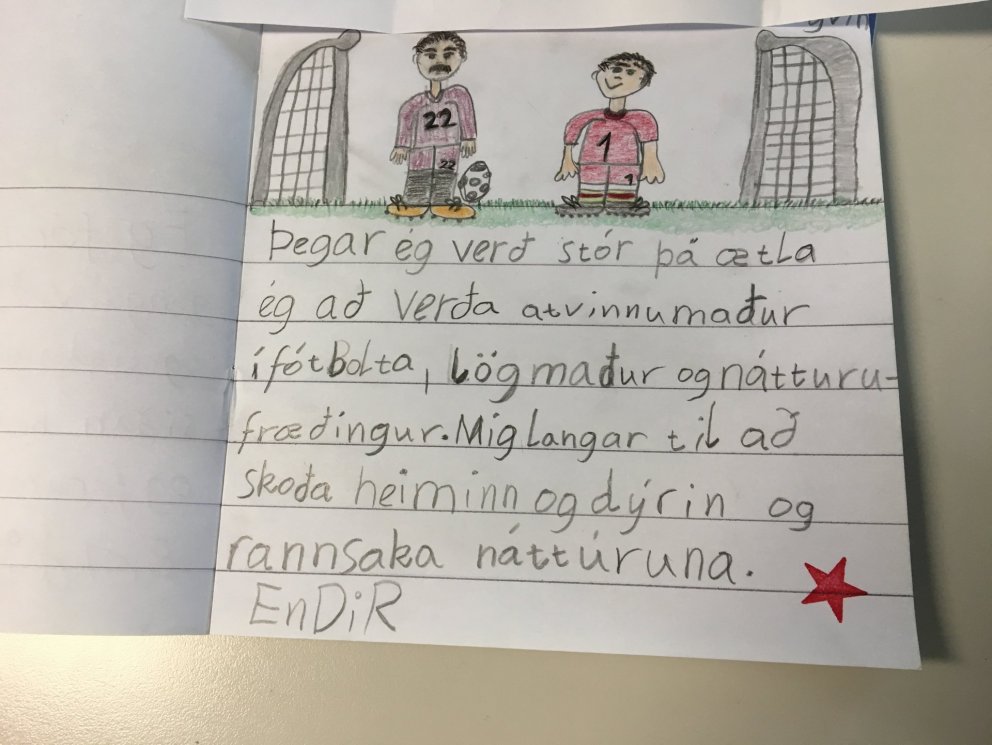 22
22
1
1
Þegar ég verð stór þá ætla
ég að verða atvinnumaður
í fótbolta, Lögmaður og nátturu-
fræðingur. Mig langar til að
skoða heiminn og dýrin og
rannsaka náttúruna.
EnDiR